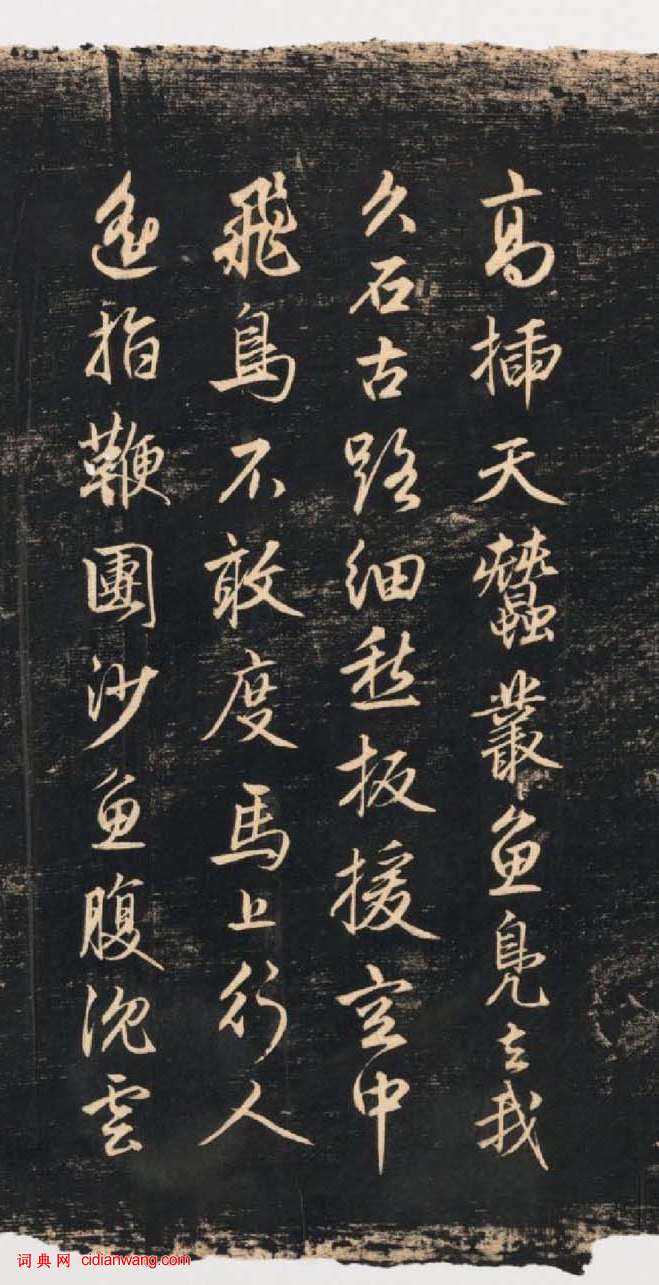 高插天蠶叢魚鳧去我
久石古路細愁扳援空中
飛鳥不敢度馬上行人
遙指鞭團沙魚腹沉雲
词典网 cidianwang.com